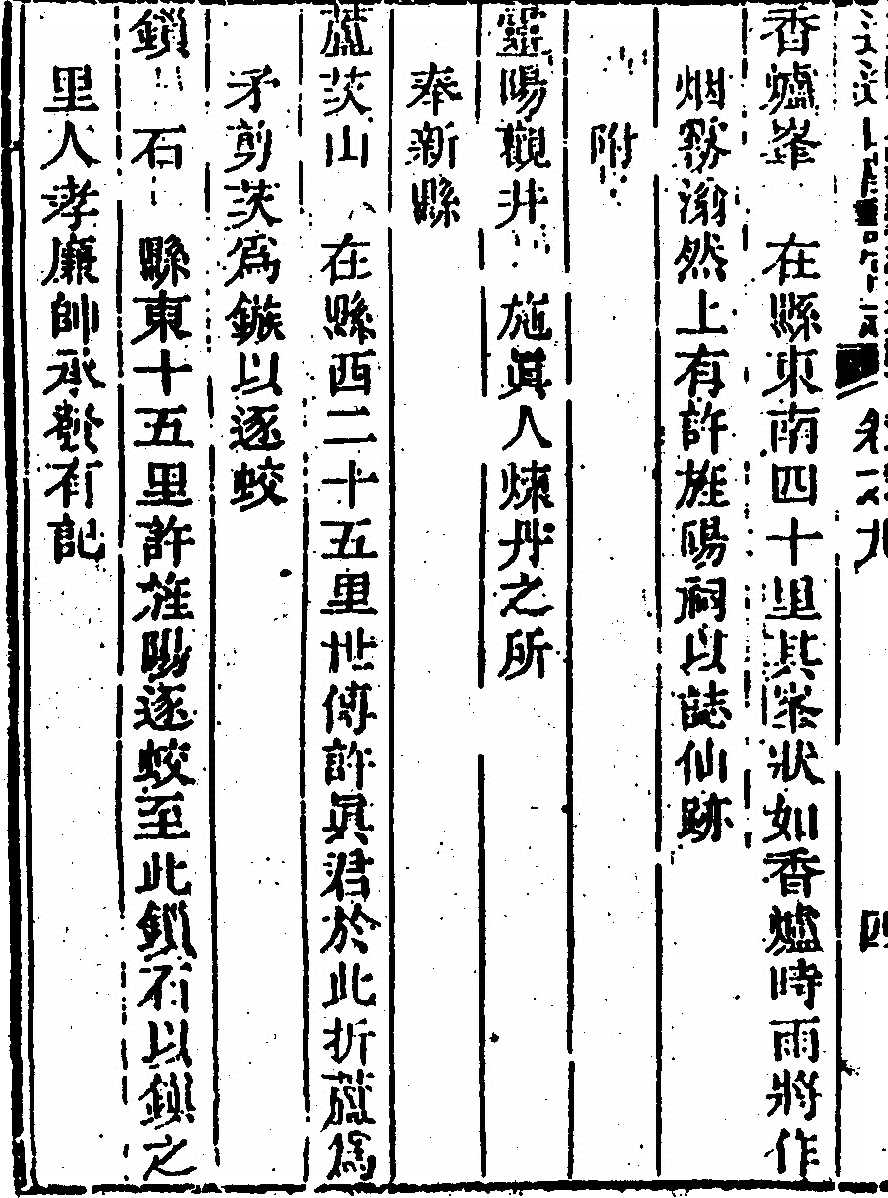 香爐峯　在縣東南四十里其峯狀如香爐時雨將作
烟霧滃然上有許旌陽祠以誌仙跡
附
靈陽觀井　施眞人煉丹之所
奉新縣
藘茨山　在縣西二十五里世傳許眞君於此折藘爲
矛剪茨爲鏃以逐蛟
鎖石　縣東十五里許旌陽逐蛟至此鎖石以鎮之
里人孝廉帥承發有記